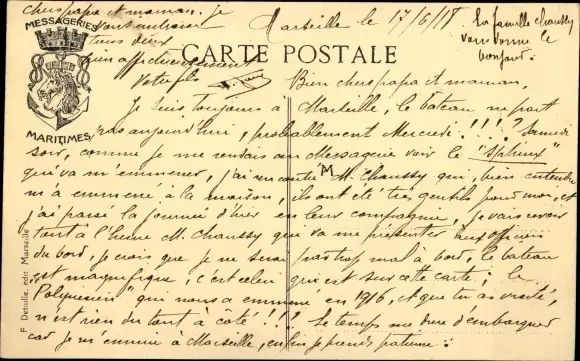 Marseille le 17/6/18
CARTE POSTALE
Bien chers papa et maman.
Je suis toujours à Marseille, le bateau ne part
pas aujourd'hui, probablement Mercredi !!!? Samedi
soir, comme je me rendais au Messagerie voir le "Sphinx"
qui va m'emmener, j'ai rencontré M. Chaussy qui, bien entendu
m'a emmené à la maison, ils ont été très gentils pour moi, et
j'ai passé la journée d'hier en leur compagnie, je vais voir
tout à l'heure M. Chaussy qui va me présenter aux officiers
du bord, je crois que je ne serai pas trop mal à bord, le bateau
est magnifique, c'est celui qui est sur cette carte ; le
"Polynésien" qui nous a emmené en 1916, et que tu as visité,
n'est rien du tout à côté !!!? Le temps me dure d'embarquer
car je m'ennuie à Marseille, enfin je prends patience :
chers papa et maman. je
vous
tous deux
bien affectueusement
Votre fils
La famille Chaussy
vous donne le
bonjour.
MESSAGERIES
MARITIMES
F. Detaille, edit. Marseille